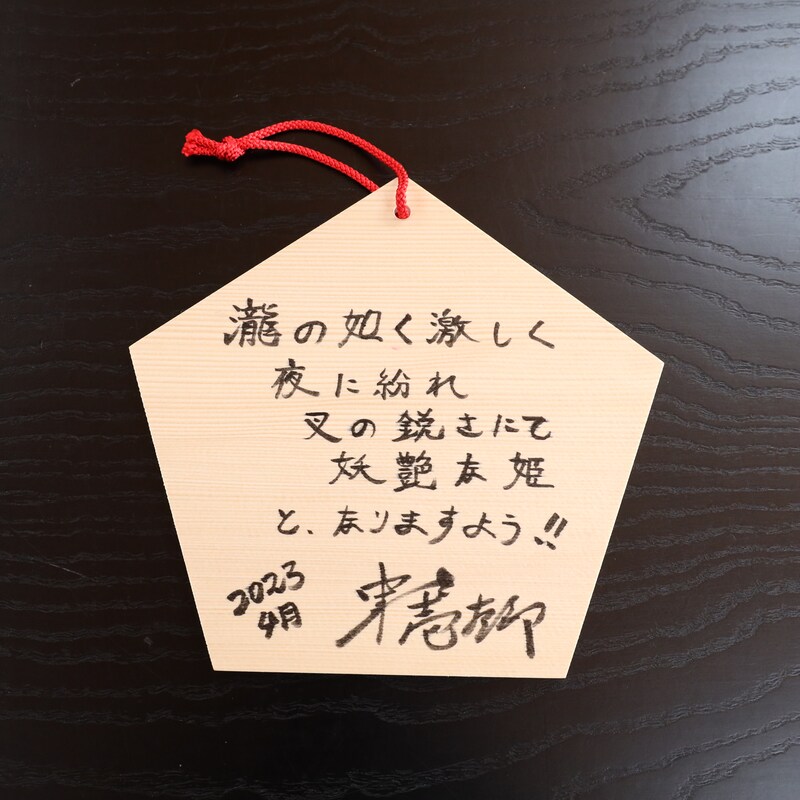 瀧の如く激しく
夜に紛れ
叉の鋭さにて
妖艶な姫
と、なりますよう!!
2023
4月